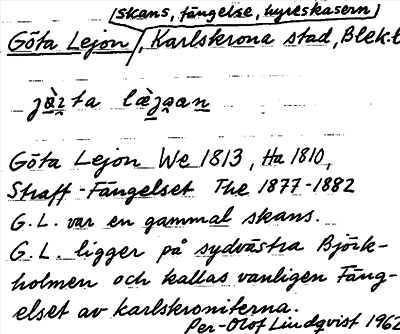 skans, fängelse, hyreskasern
Göta Lejon, Karlskrona stad, Blek.l
Göta Lejon We 1813, Ha 1810,
Straff-Fängelset The 1877-1882
G.L. var en gammal skans.
G.L. ligger på sydvästra Björk-
holmen och kallas vanligen Fäng-
elset av karlskroniterna.
Per-Olof Lindqvist 1962